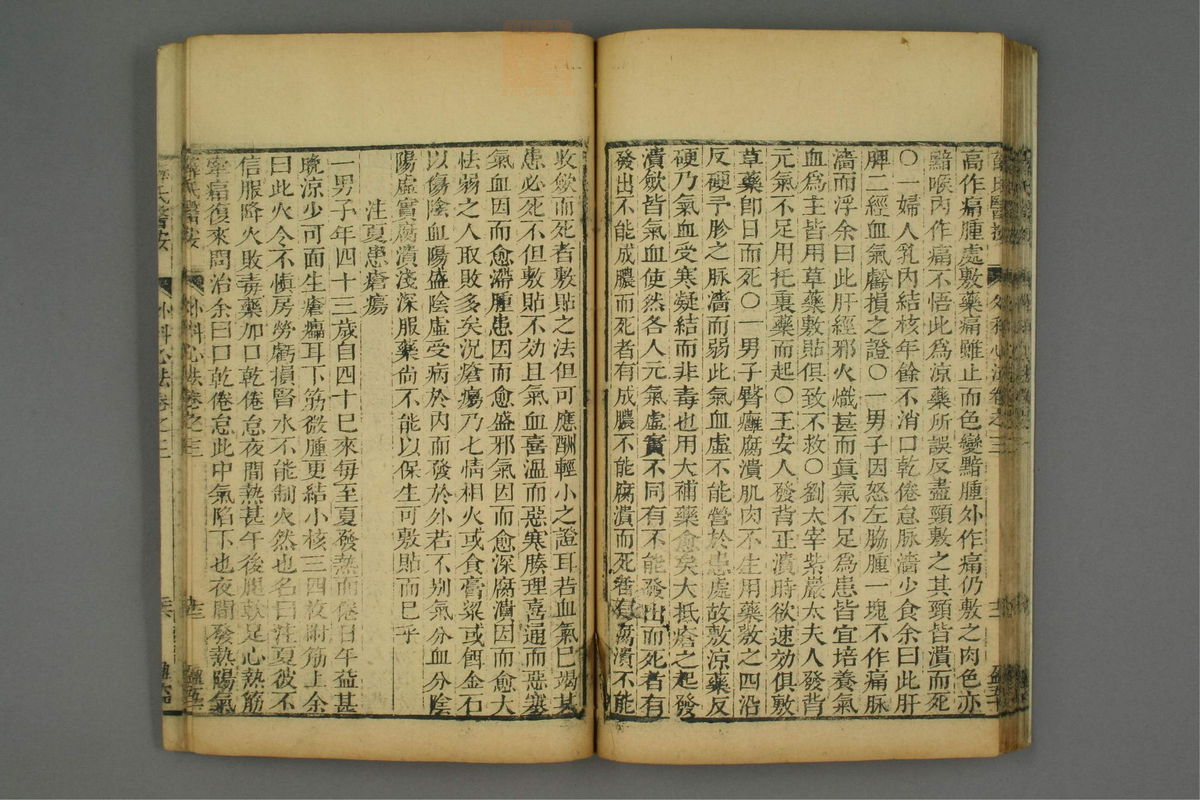 高作痛腫處敷藥痛雖止而色變黯腫外作痛仍敷之肉色亦
黯喉內作痛不悟此爲涼藥所誤反盡頸敷之其頸皆潰而死
〇一婦人乳內結核年餘不消口乾倦怠脉濇少食余曰此肝
脾二經血氣虧損之證〇一男子因怒左脇腫一塊不作痛脉
濇而浮余曰此肝經邪火熾甚而眞氣不足爲患皆宜培養氣
血爲主皆用草藥敷貼俱致不救〇劉太宰紫巖太夫人發背
元氣不足用托裏藥而起〇王安人發背正潰時欲速効俱敷
草藥卽日而死〇一男子臀癰腐潰肌肉不生用藥敷之四沿
反硬予胗之脉濇而弱此氣血虛不能營於患處故敷涼藥反
硬乃氣血受寒凝結而非毒也用大補藥愈矣大抵瘡之起發
潰歛皆氣血使然各人元氣虛實不同有不能發出而死者有
發出不能成膿而死者有成膿不能腐潰而死者有腐潰不能
收歛而死者敷貼之法但可應酬輕小之證耳若血氣已竭其
患必死不但敷貼不効且氣血喜溫而惡寒腠理喜通而惡塞
氣血因而愈滯腫患因而愈盛邪氣因而愈深腐潰因而愈大
怯弱之人取敗多矣況瘡瘍乃七情相火或食膏粱或餌金石
以傷陰血陽盛陰虛受病於內而發於外若不別氣分血分陰
陽虛實腐潰淺深服藥尚不能以保生可敷貼而已乎
注夏患瘡瘍
一男子年四十三歲自四十巳來每至夏發熱而倦日午益甚
晚涼少可面生瘡癟耳下筋微腫更結小核三四枚附筋上余
曰此火令不愼房勞虧損腎水不能制火然也名曰注夏彼不
信服降火敗毒藥加口乾倦怠夜間熱甚午後腿軟足心熱筋
牽痛復來問治余曰口乾倦怠此中氣陷下也夜間發熱陽氣
薛氏醫按 外科心法卷之三